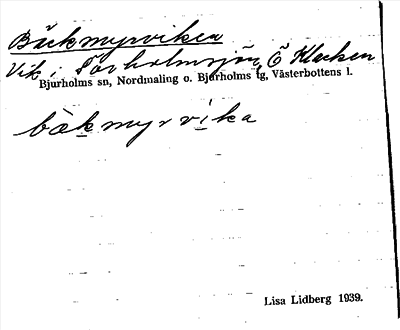 Bäckmyrviken
Vik i Torholmsjön, Ö Klacken
Bjurholms sn, Nordmaling o. Bjurholms tg, Västerbottens l.
bäkmyrvika
Lisa Lidberg 1939.